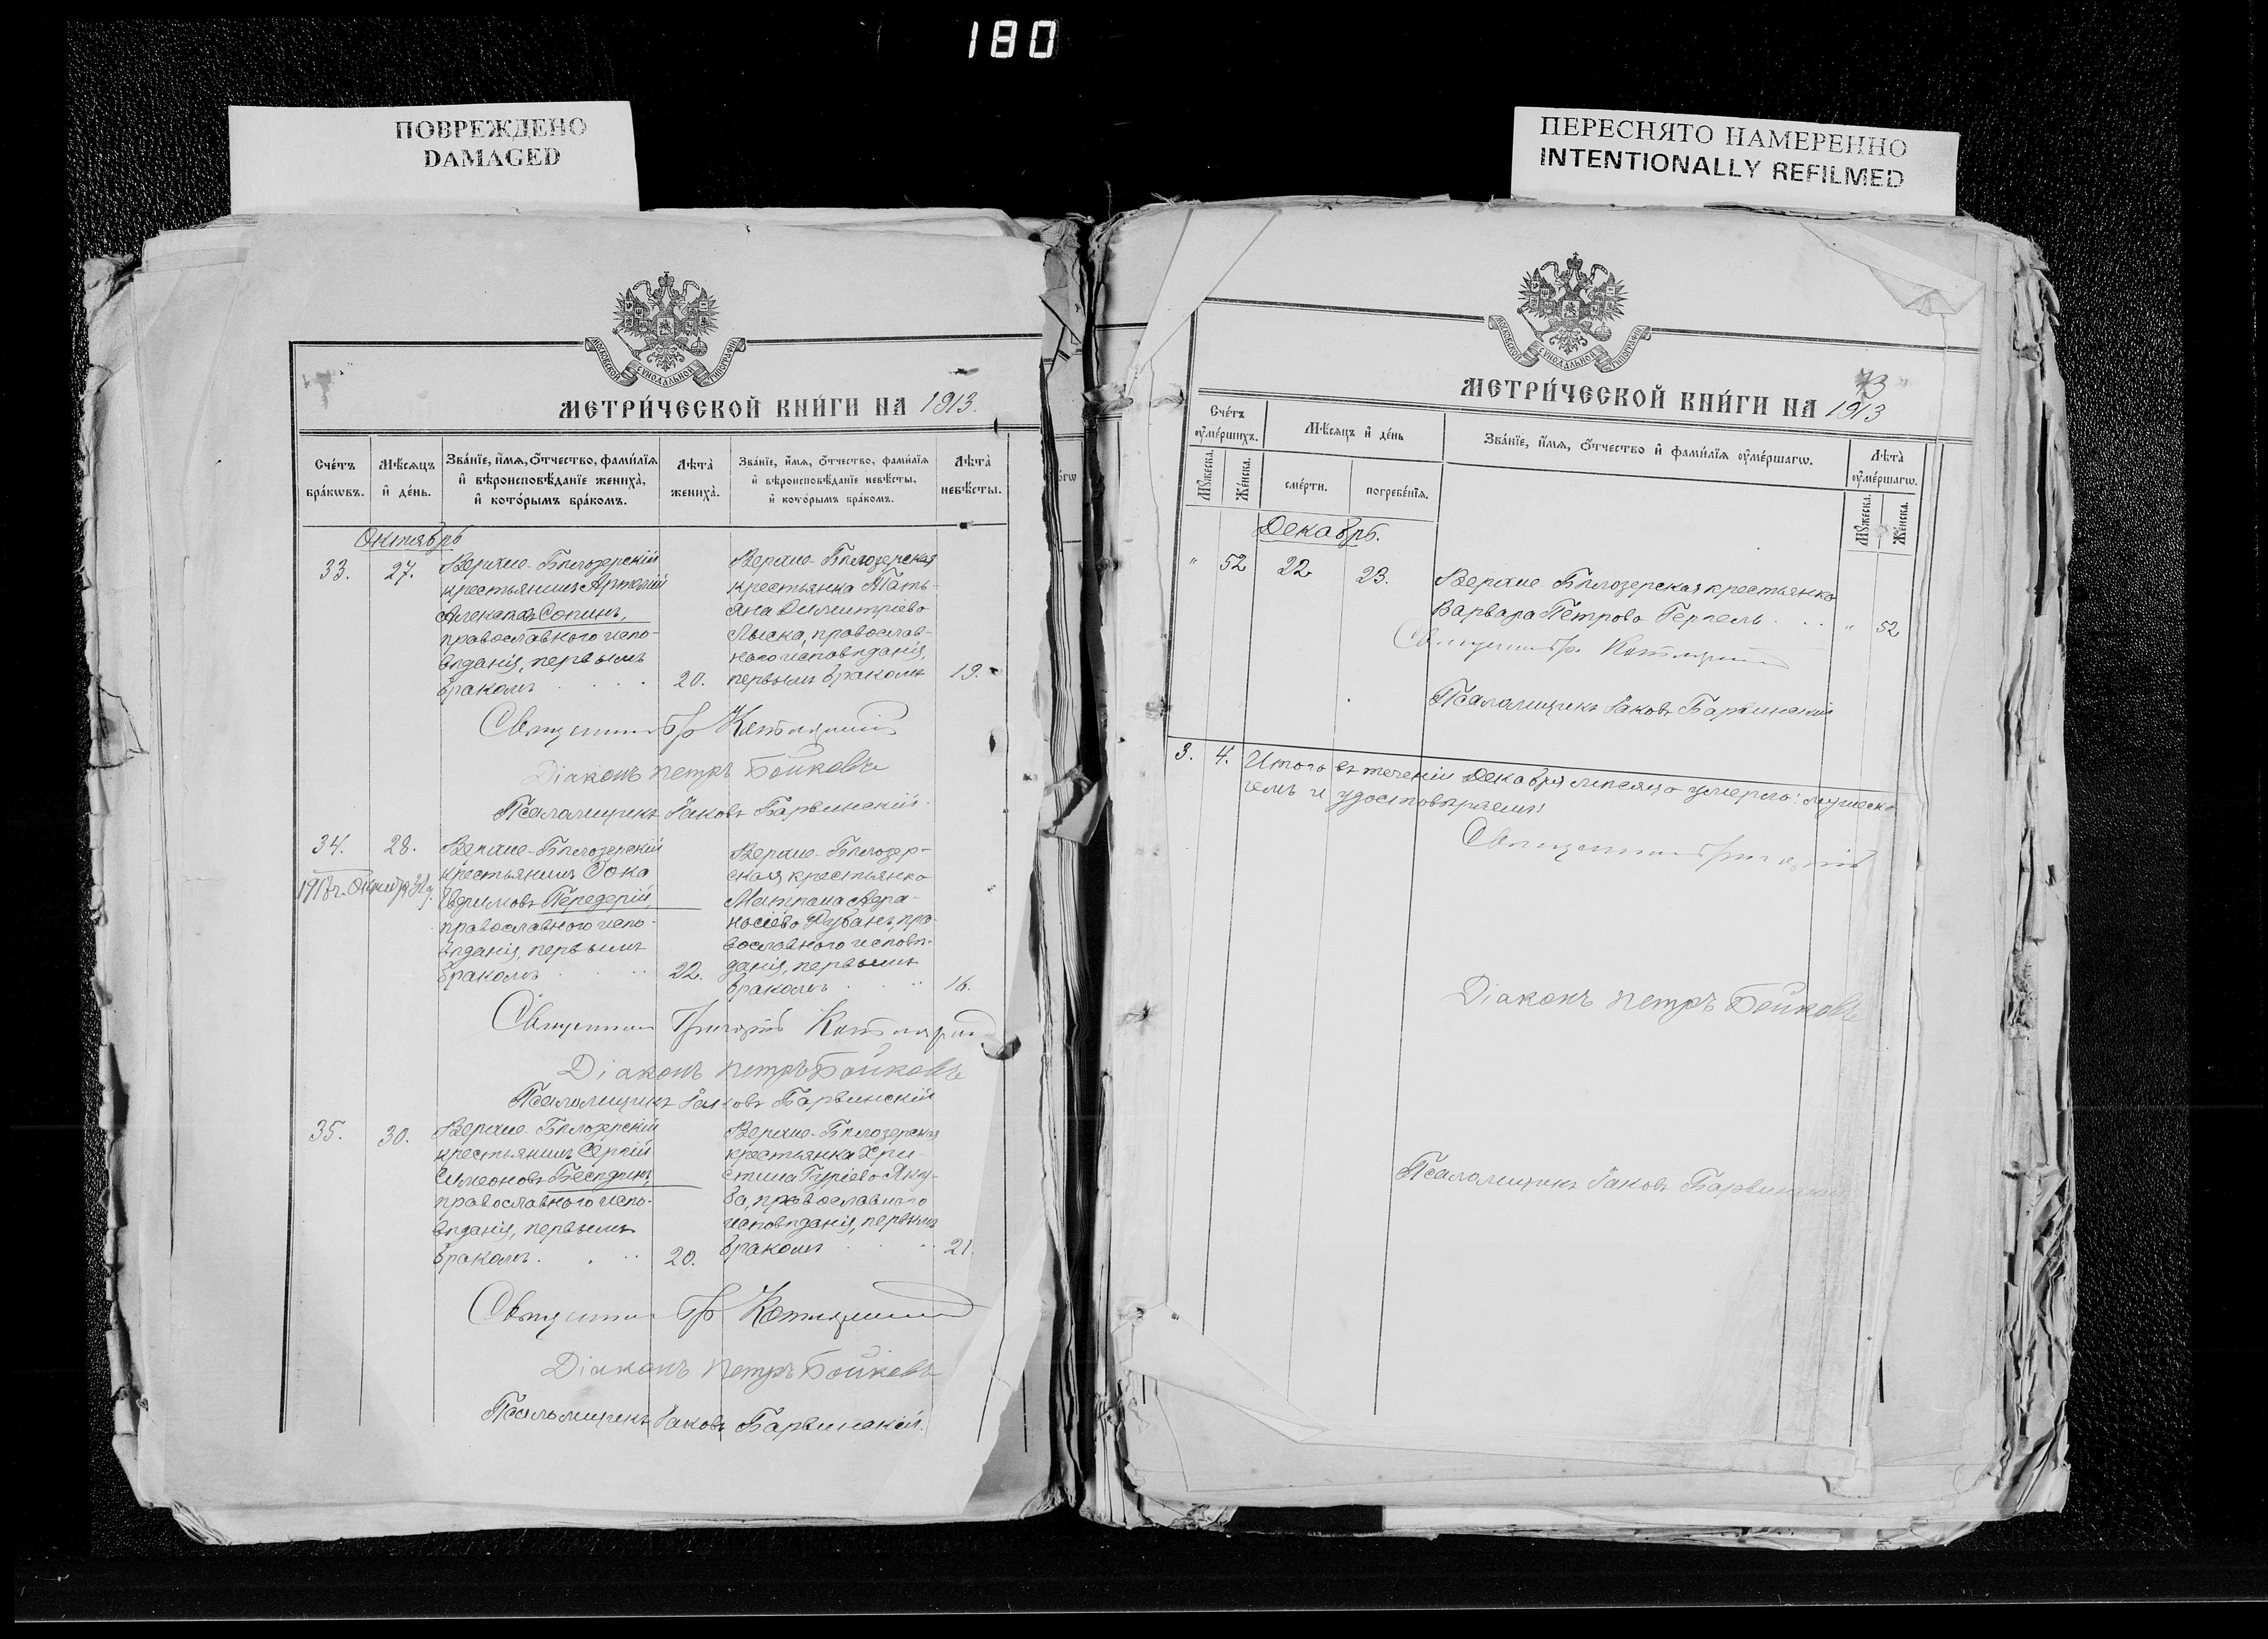 180
ПОВРЕЖДЕНО
DAMAGED
ПЕРЕСНЯТО НАМЕРЕННО
INTENTIONALLY REFILMED
МОСКОВСКОЙ СУНОДАЛЬНОЙ ТИПОГРАФІИ
МЕТРИ́ЧЕСКОЙ КНИ́ГИ НА 1913.
Сче́тъ бра́кωвъ.
Мѣ́сяцъ и҆ де́нь.
Зва́нїе, и҆́мѧ, ѻ҆́тчество, фами́лїѧ
и҆ вѣроисповѣ́данїе жениха̀,
и҆ кото́рымъ бра́комъ.
Лѣта̀ жениха̀.
Зва́нїе, и҆́мѧ, ѻ҆́тчество, фами́лїѧ
и҆ вѣроисповѣ́данїе невѣ́сты,
и҆ кото́рымъ бра́комъ.
Лѣта̀ невѣ́сты.
Октябрь
33.
27.
Верхне-Бѣлозерскій
крестьянинъ Артемій
Сопинъ,
православнаго испо-
вѣданія, первымъ
бракомъ
20.
Верхне-Бѣлозерская
крестьянка Тать-
яна Димитріева
Лыска, православ-
наго исповѣданія,
первымъ бракомъ
19.
Священникъ Гр
Діаконъ Петръ Бойковъ
Псаломщикъ Іаковъ Барвинскій.
34.
28.
Верхне-Бѣлозерскій
крестьянинъ Ѳома
Передерій,
православнаго испо-
вѣданія, первымъ
бракомъ
22.
Верхне-Бѣлозер-
ская крестьянка
Матрона Аѳа-
насіева пра-
вославнаго исповѣ-
данія, первымъ
бракомъ
16.
Священникъ Григорій
Діаконъ Петръ Бойковъ
Псаломщикъ Іаковъ Барвинскій
35.
30.
Верхне-Бѣлозерскій
крестьянинъ Сергій
Симеоновъ
православнаго испо-
вѣданія, первымъ
бракомъ.
20.
Верхне-Бѣлозерская
крестьянка Хри-
стина Гуріева Яку-
ба, православнаго
исповѣданія, первымъ
бракомъ
21.
Священникъ Гр
Діаконъ Петръ Бойковъ
Псаломщикъ Іаковъ Барвинскій.
МОСКОВСКОЙ СУНОДАЛЬНОЙ ТИПОГРАФІИ
73
МЕТРИ́ЧЕСКОЙ КНИ́ГИ НА 1913
Сче́тъ ᲂу҆ме́ршихъ.
Мѣ́сяцъ и҆ де́нь
Зва́нїе, и҆́мѧ, ѻ҆́тчество и҆ фами́лїѧ ᲂу҆ме́ршагω.
Лѣта̀ ᲂу҆ме́ршагω.
Мꙋ́жеска.
Же́нска.
сме́рти.
погребе́нїѧ.
Мꙋ́жеска.
Же́нска.
Декабрь.
" 52 22 23.
Верхне-Бѣлозерская крестьянка
Варвара Петрова Герпель
" 52
Священникъ Гр.
Псаломщикъ Іаковъ Барвинскій
3. 4. Итого въ теченіи Декабря мѣсяца умерло:
чемъ и удостовѣряемъ:
Священникъ Григорій
Діаконъ Петръ Бойковъ
Псаломщикъ Іаковъ Барвинскій